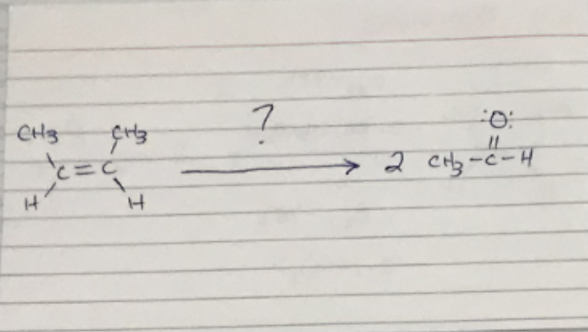 ?
:O:
||
CH3 CH3
\ /
C=C
/ \
H H
⟶ 2 CH3-C-H